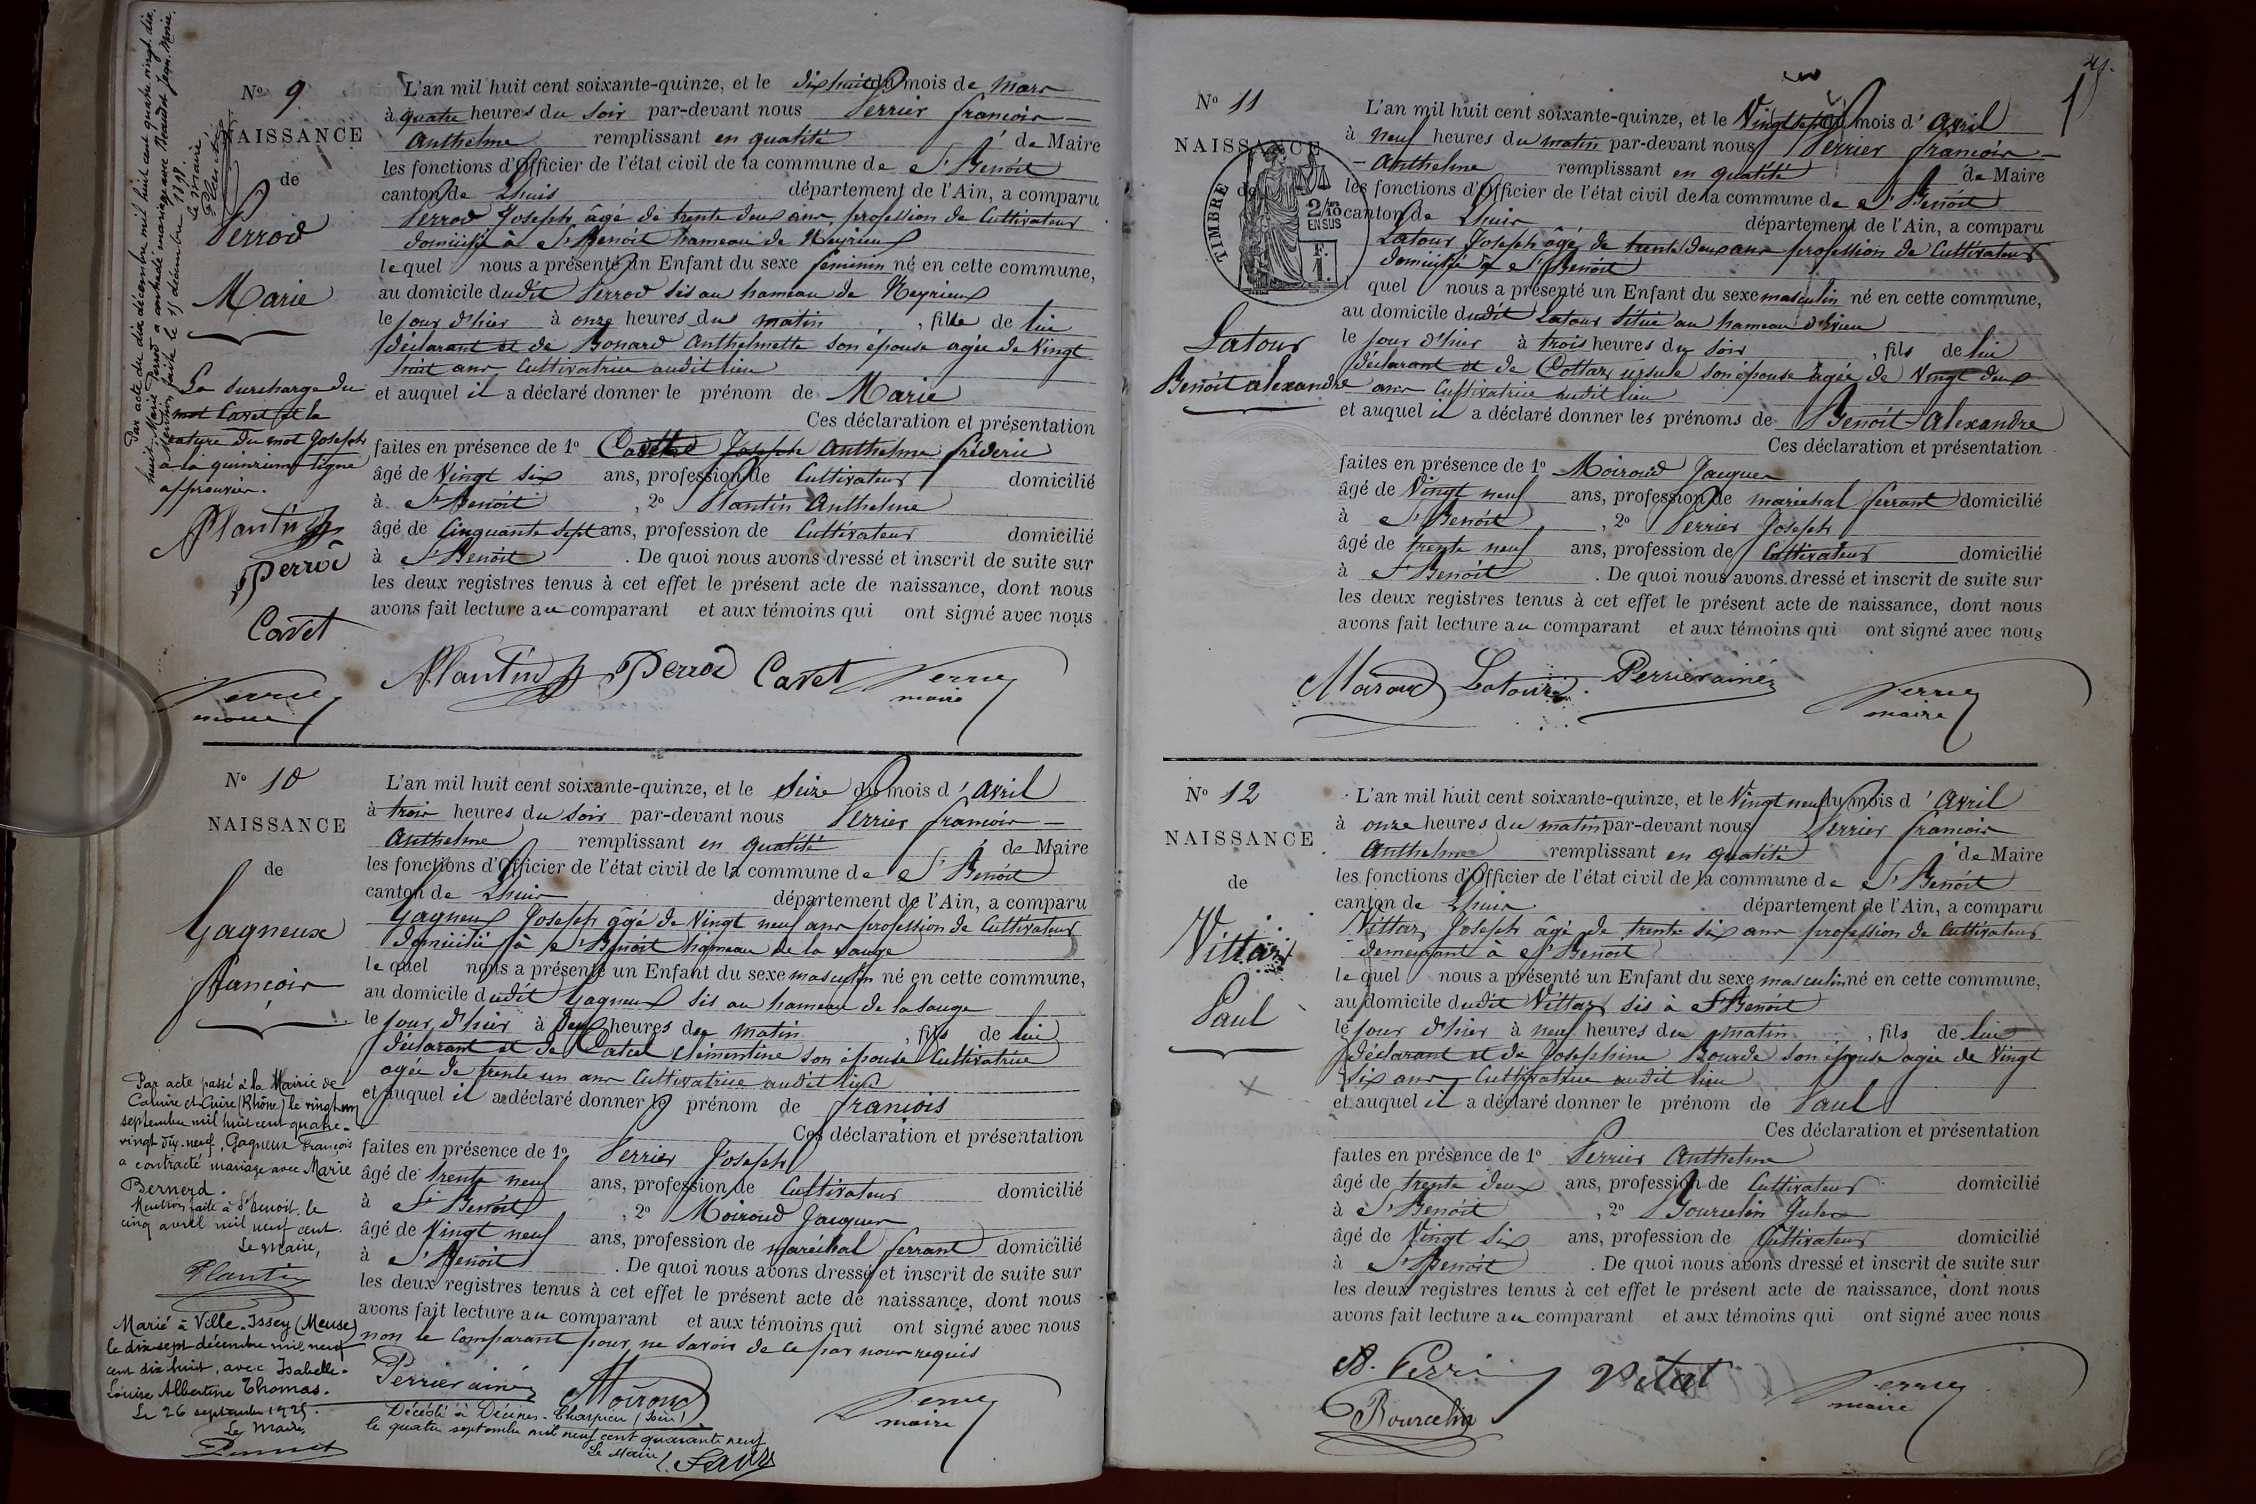 Nº 9
NAISSANCE
de
Perrod
Marie
Par acte du dix décembre mil huit cent quatre vingt dix
huit Marie Perrod a contracté mariage avec Béadet Jean Marie.
Mention faite le 15 décembre 1898.
Le Maire,
Plantin
La surcharge du
mot Cavet et la
rature du mot Joseph
à la quinzième ligne
approuvées.
Plantin
Perrod
Cavet
Perrier
maire
L'an mil huit cent soixante-quinze, et le dix huit du mois de Mars
à quatre heures du soir par-devant nous Perrier françois
Anthelme remplissant en qualité de Maire
les fonctions d'Officier de l'état civil de la commune de St Benoît
canton de Lhuis département de l'Ain, a comparu
Perrod Joseph âgé de trente deux ans, profession de Cultivateur
domicilié à St Benoît hameau de Neyrieux
lequel nous a présenté un Enfant du sexe feminin né en cette commune,
au domicile dudit Perrod sis au hameau de Neyrieux
le jour d'hier à onze heures du matin, fille de lui
déclarant et de Bonard Anthelmette son épouse agée de Vingt
huit ans Cultivatrice audit lieu
et auquel il a déclaré donner le prénom de Marie
Ces déclaration et présentation
faites en présence de 1º Cavet Joseph Anthelme fréderic
âgé de Vingt six ans, profession de Cultivateur domicilié
à St Benoît, 2º Plantin Anthelme
âgé de Cinquante sept ans, profession de Cultivateur domicilié
à St Benoît. De quoi nous avons dressé et inscrit de suite sur
les deux registres tenus à cet effet le présent acte de naissance, dont nous
avons fait lecture au comparant et aux témoins qui ont signé avec nous
Plantin Perrod Cavet Perrier
maire
Nº 10
NAISSANCE
de
Gagneux
françois
Par acte passé à la Mairie de
Caluire et Cuire (Rhône) le vingt un
septembre mil huit cent quatre-
vingt dix-neuf, Gagneux François
a contracté mariage avec Marie
Bernerd.
Mention faite à St Benoit, le
cinq avril mil neuf cent.
Le Maire,
Plantin
Marié à Ville-Issey (Meuse)
le dix sept décembre mil neuf
cent dix huit, avec Isabelle-
Louise Albertine Thomas.
Le 26 septembre 1925.
Le Maire,
L'an mil huit cent soixante-quinze, et le Seize du mois d'Avril
à trois heures du soir par-devant nous Perrier françois
Anthelme remplissant en qualité de Maire
les fonctions d'Officier de l'état civil de la commune de St Benoît
canton de Lhuis département de l'Ain, a comparu
Gagneux Joseph âgé de Vingt neuf ans profession de Cultivateur
domicilié à St Benoît hameau de la sauge
lequel nous a présenté un Enfant du sexe masculin né en cette commune,
au domicile dudit Gagneux sis au hameau de la sauge
le jour d'hier à deux heures du matin, fils de lui
déclarant et de Catcel Clémentine son épouse Cultivatrice
agée de trente un ans Cultivatrice audit lieu
et auquel il a déclaré donner le prénom de françois
Ces déclaration et présentation
faites en présence de 1º Perrier Joseph
âgé de trente neuf ans, profession de Cultivateur domicilié
à St Benoît, 2º Moiroud Jacques
âgé de Vingt neuf ans, profession de maréchal ferrant domicilié
à St Benoît. De quoi nous avons dressé et inscrit de suite sur
les deux registres tenus à cet effet le présent acte de naissance, dont nous
avons fait lecture au comparant et aux témoins qui ont signé avec nous
non le comparant pour ne savoir de ce par nous requis
Perrier ainé Moiroud Perrier
maire
Décédé à Décines-Charpieu (Isère)
le quatre septembre mil neuf cent quarante neuf
Le Maire
Nº 11
NAISSANCE
de
TIMBRE
2/10
EN SUS
F.
1.
Latour
Benoît alexandre
L'an mil huit cent soixante-quinze, et le Vingt sept du mois d'Avril
à neuf heures du matin par-devant nous Perrier françois
Anthelme remplissant en qualité de Maire
les fonctions d'Officier de l'état civil de la commune de St Benoît
canton de Lhuis département de l'Ain, a comparu
Latour Joseph âgé de trente deux ans profession de Cultivateur
domicilié à St Benoît
l quel nous a présenté un Enfant du sexe masculin né en cette commune,
au domicile dudit Latour situé au hameau d'Evieu
le jour d'hier à trois heures du soir, fils de lui
déclarant et de Cottaz ursule son épouse agée de Vingt deux
ans Cultivatrice audit lieu
et auquel il a déclaré donner les prénoms de Benoît-Alexandre
Ces déclaration et présentation
faites en présence de 1º Moiroud Jacques
âgé de Vingt neuf ans, profession de maréchal ferrant domicilié
à St Benoît, 2º Perrier Joseph
âgé de trente neuf ans, profession de Cultivateur domicilié
à St Benoît. De quoi nous avons dressé et inscrit de suite sur
les deux registres tenus à cet effet le présent acte de naissance, dont nous
avons fait lecture au comparant et aux témoins qui ont signé avec nous
Moiroud Latour Perrier ainé Perrier
maire
Nº 12
NAISSANCE
de
Vittaz
Paul
L'an mil huit cent soixante-quinze, et le Vingt neuf du mois d'Avril
à onze heures du matin par-devant nous Perrier françois
Anthelme remplissant en qualité de Maire
les fonctions d'Officier de l'état civil de la commune de St Benoît
canton de Lhuis département de l'Ain, a comparu
Vittaz Joseph âgé de trente six ans profession de Cultivateur
demeurant à St Benoît
lequel nous a présenté un Enfant du sexe masculin né en cette commune,
au domicile dudit Vittaz sis à St Benoît
le jour d'hier à neuf heures du matin, fils de lui
déclarant et de Josephine Bourde son épouse agée de Vingt
six ans Cultivatrice audit lieu
et auquel il a déclaré donner le prénom de Paul
Ces déclaration et présentation
faites en présence de 1º Perrier Anthelme
âgé de trente deux ans, profession de Cultivateur domicilié
à St Benoît, 2º Bourcelin Jules
âgé de Vingt six ans, profession de Cultivateur domicilié
à St Benoît. De quoi nous avons dressé et inscrit de suite sur
les deux registres tenus à cet effet le présent acte de naissance, dont nous
avons fait lecture au comparant et aux témoins qui ont signé avec nous
A. Perrier Vitat Perrier
maire
Bourcelin